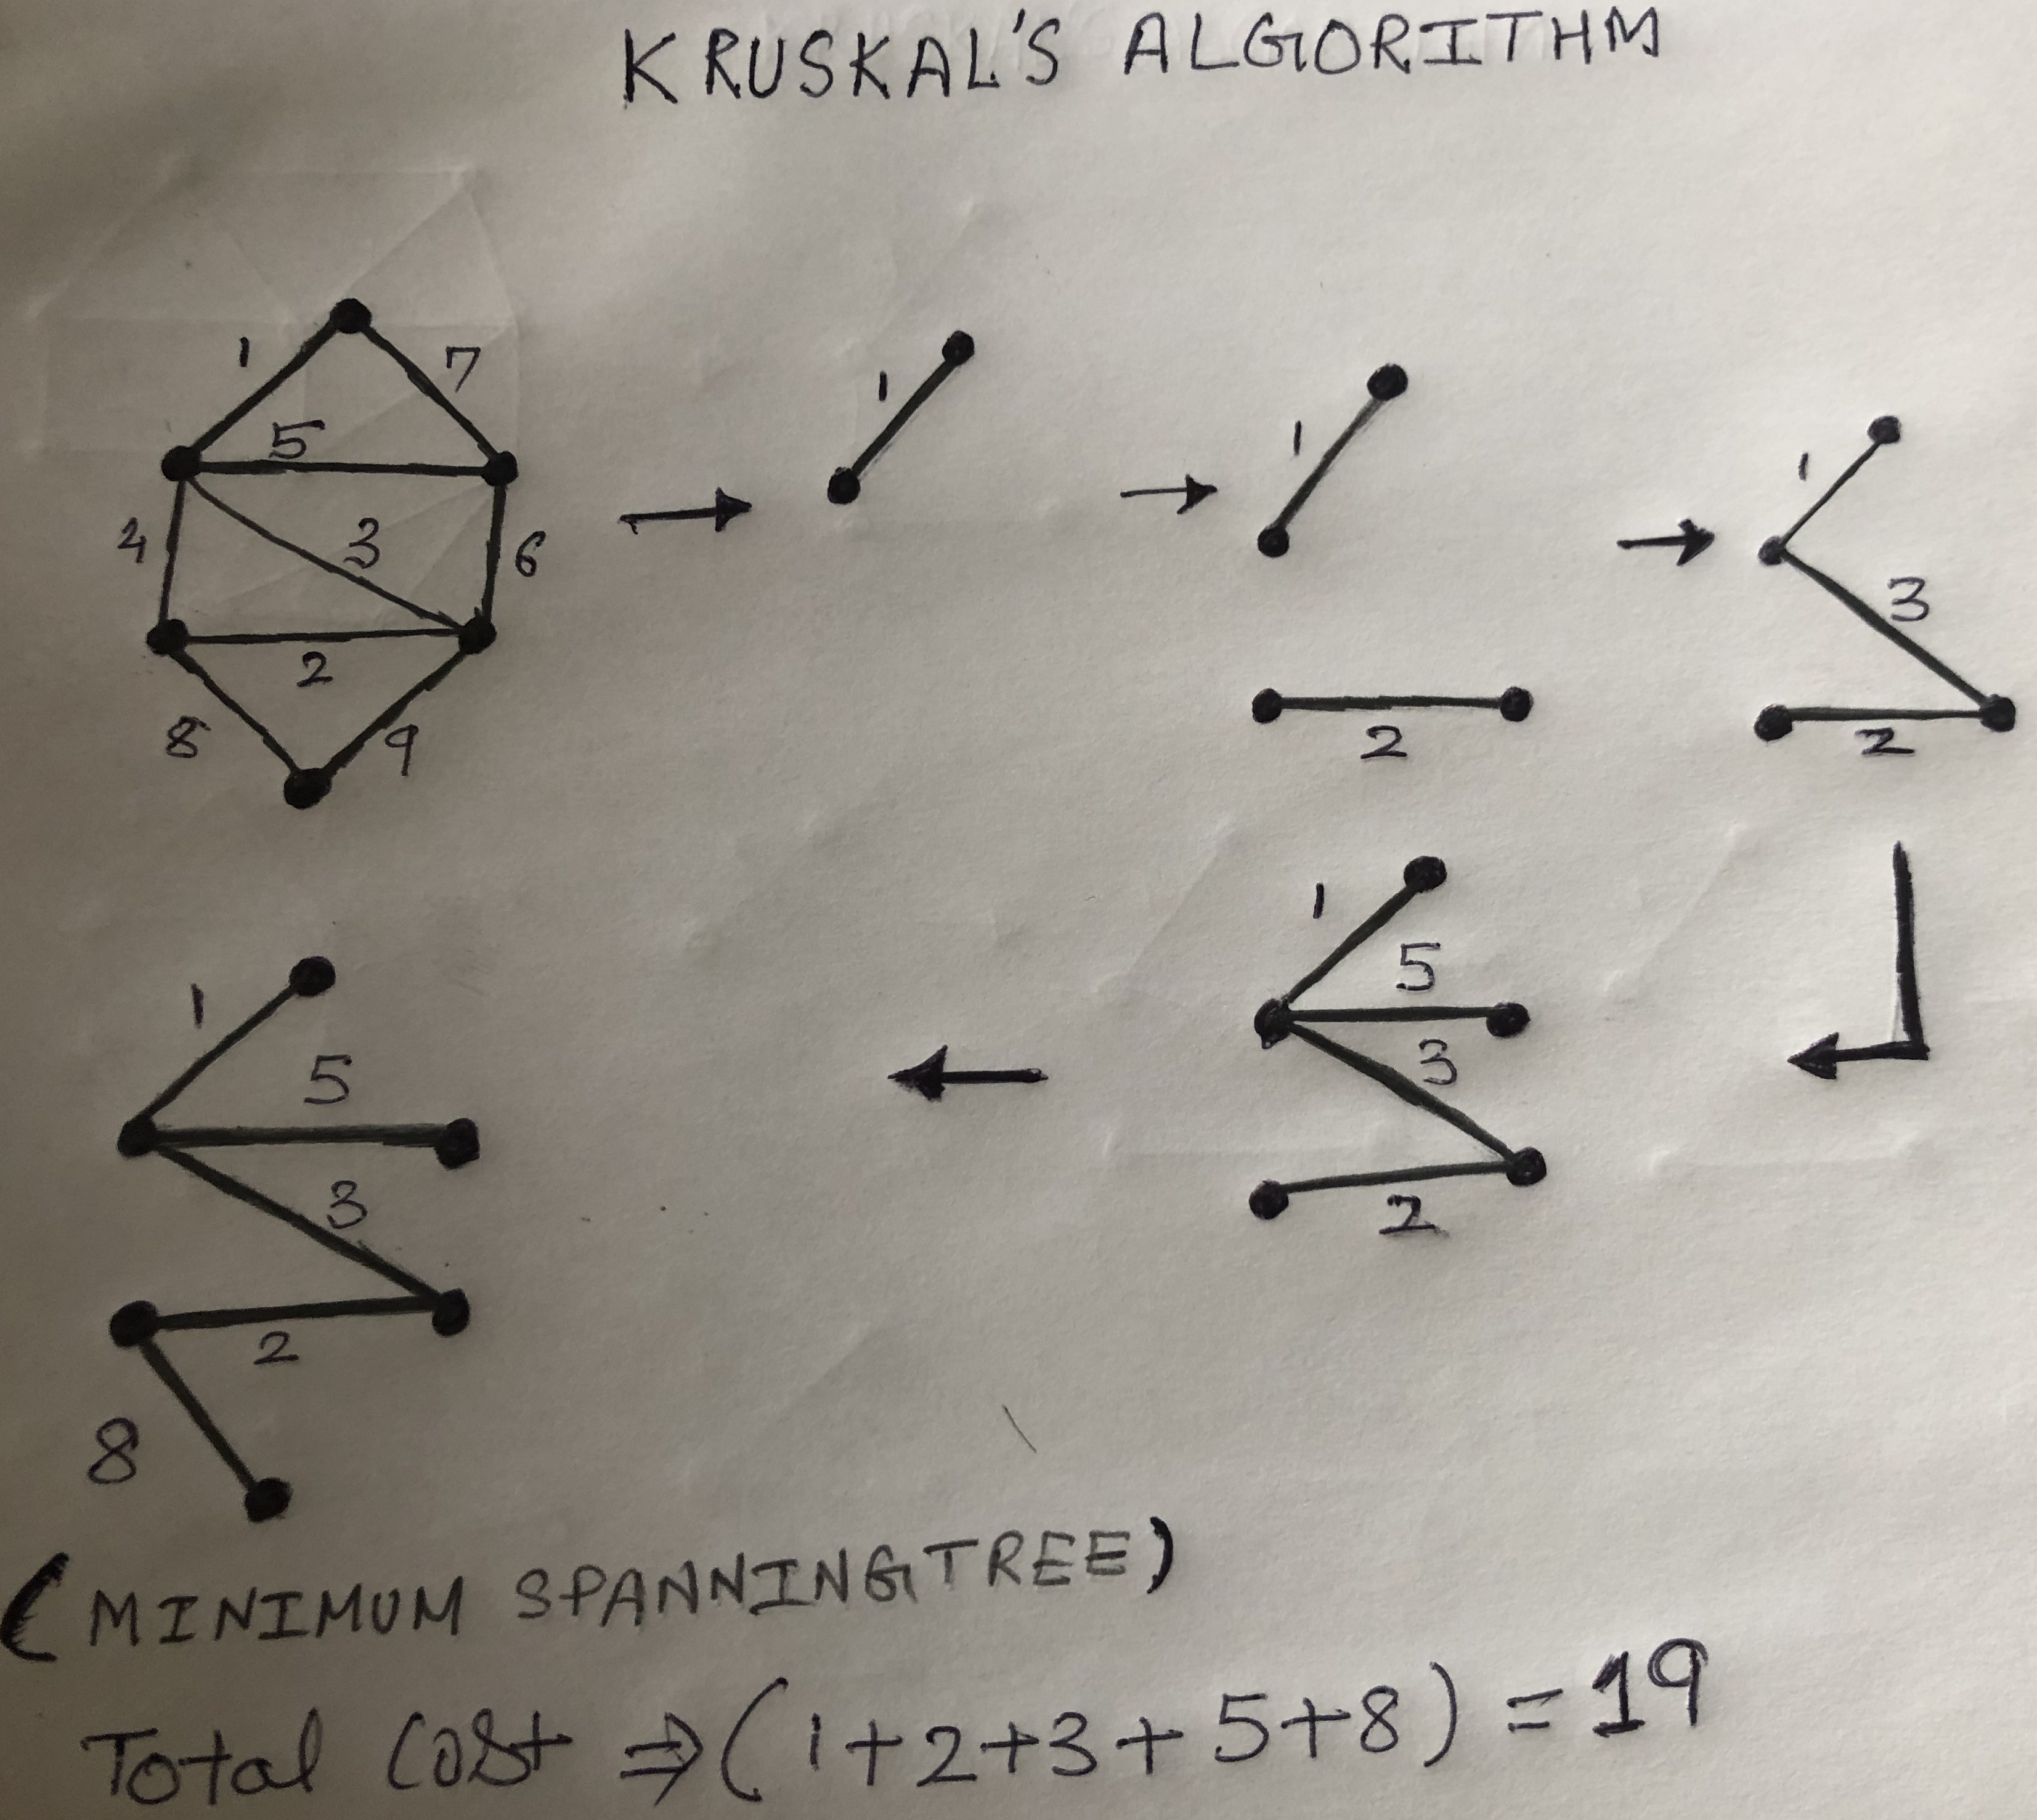 KRUSKAL'S ALGORITHM
1 7
5
4 3 6
2
8 9
1
1
2
1
3
2
1
5
3
2
1
5
3
2
8
(MINIMUM SPANNINGTREE)
Total Cost ⇒ (1+2+3+5+8) = 19